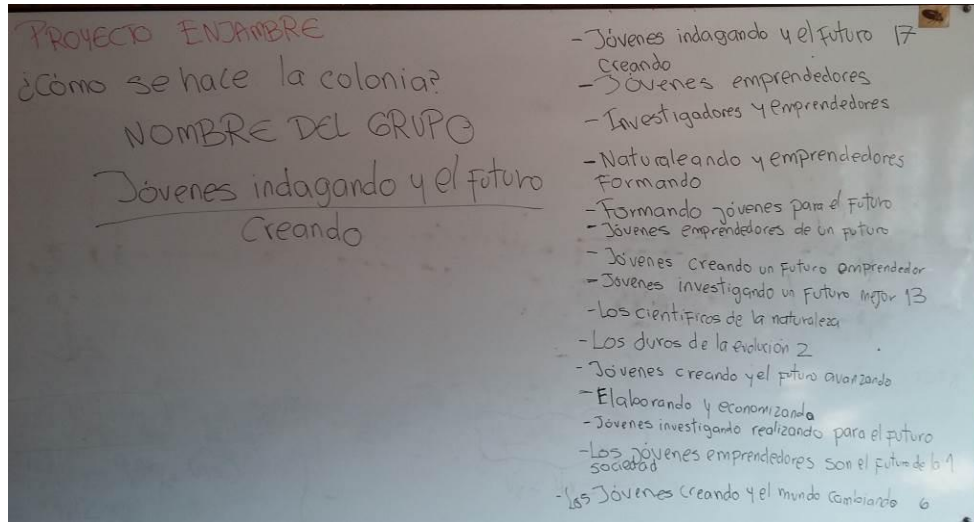 PROYECTO ENJAMBRE
¿Cómo se hace la colonia?
NOMBRE DEL GRUPO
Jóvenes indagando y el futuro
Creando
- Jóvenes indagando y el futuro 17
creando
- Jóvenes emprendedores
- Investigadores y emprendedores
- Naturaleando y emprendedores
Formando
- Formando jóvenes para el futuro
- Jóvenes emprendedores de un futuro
- Jóvenes creando un futuro emprendedor
- Jóvenes investigando un futuro mejor 13
- Los científicos de la naturaleza
- Los duros de la evolución 2
- Jóvenes creando y el futuro avanzando
- Elaborando y economizando
- Jóvenes investigando realizando para el futuro
- Los jóvenes emprendedores son el futuro de la 1
sociedad
- Los Jóvenes creando y el mundo cambiando 6